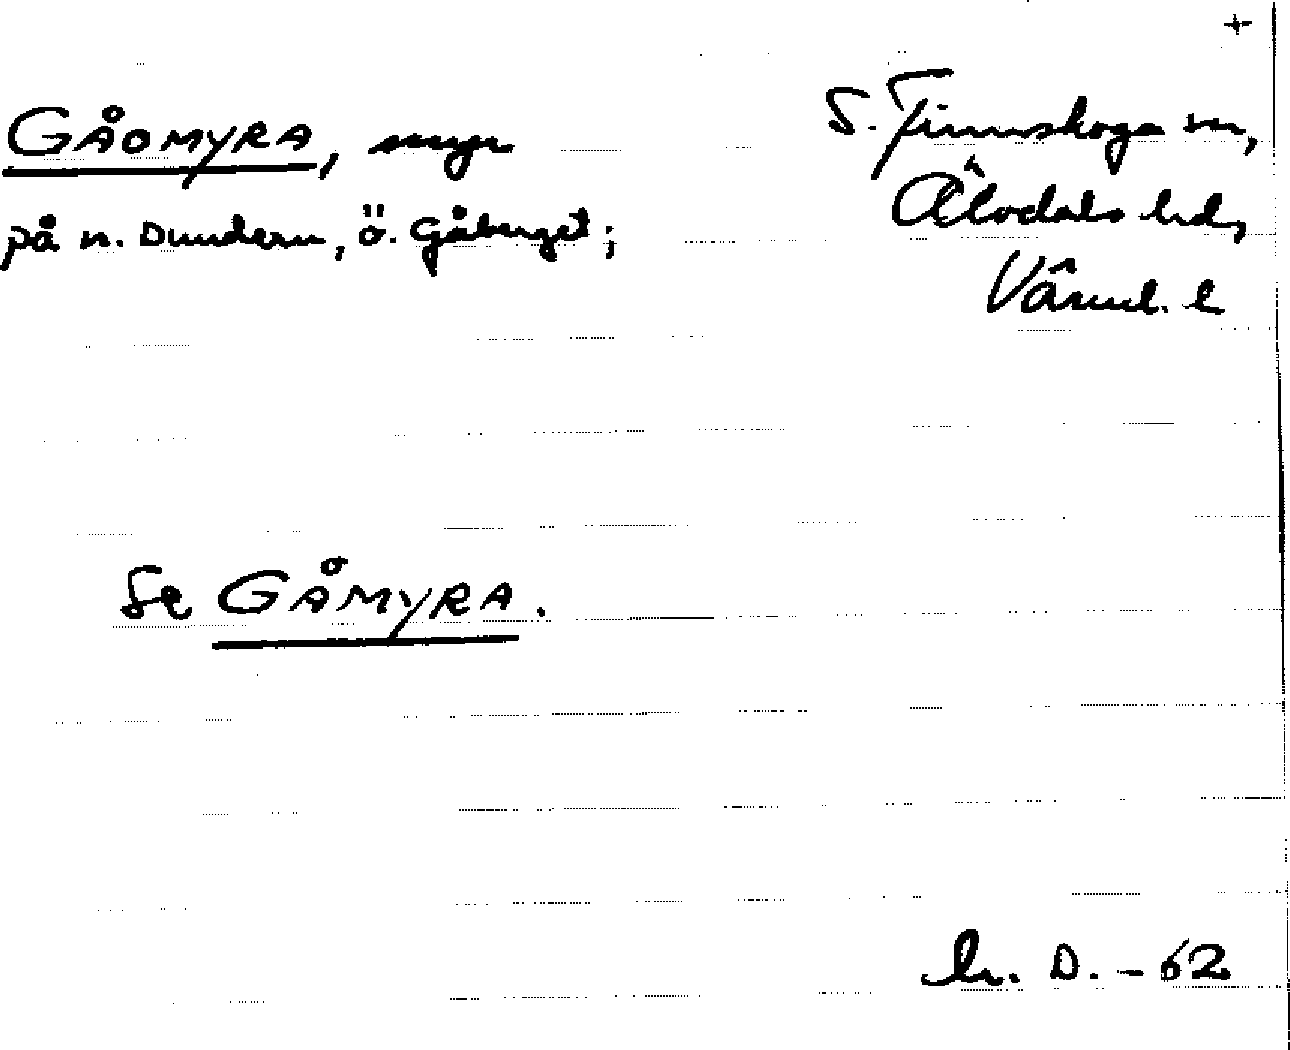 +
GÅOMYRA, myr
på n. Dundern, ö. Gåberget;
S. Finnskoga sn,
Älvdals hd,
Värml. l
Se GÅMYRA.
D. - 62